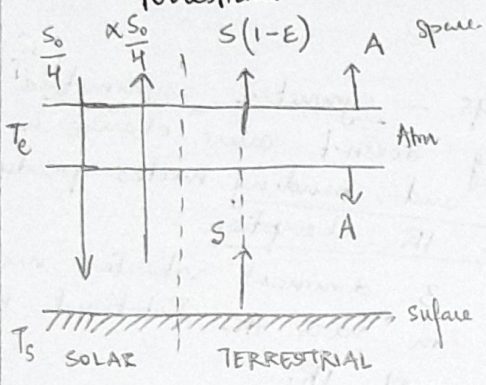 S₀/4 αS₀/4 S(1-ε) A Space
Te Atm
S A
Ts Surface
SOLAR TERRESTRIAL